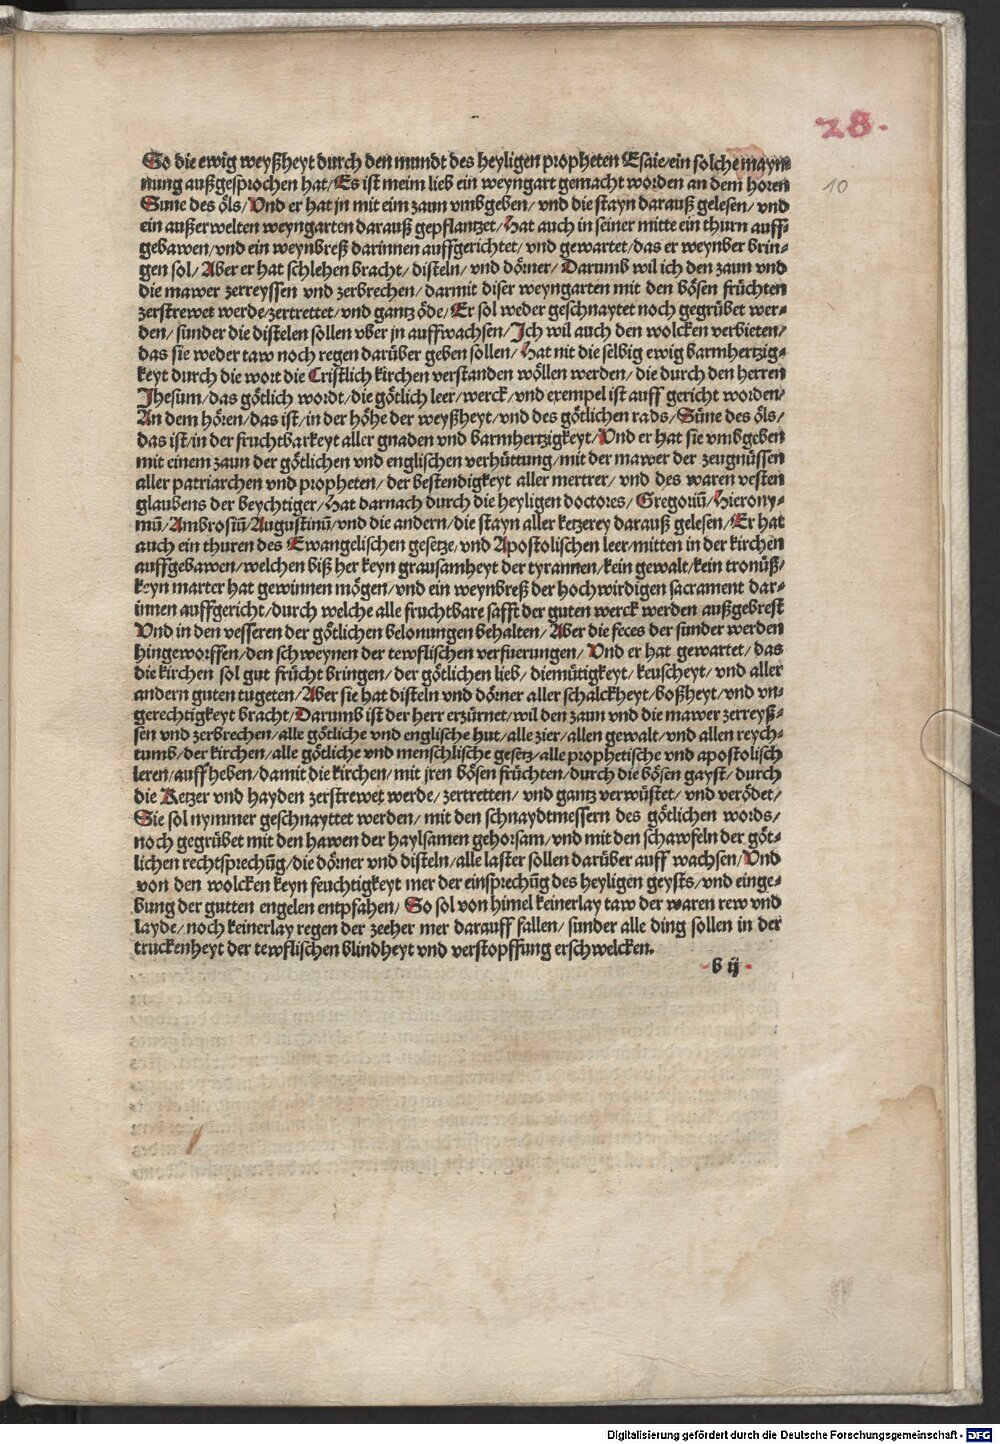 28.
So die ewig weyßheyt durch den mundt des heyligen propheten Esaie/ein solche mayn
10
nung außgesprochen hat/Es ist meim lieb ein weyngart gemacht worden an dem horen
Sune des öls/Vnd er hat jn mit eim zaun vmbgeben/vnd die stayn darauß gelesen/vnd
ein außerwelten weyngarten darauß gepflantzet/Hat auch in seiner mitte ein thurn auff⸗
gebawen/vnd ein weynbreß darinnen auffgerichtet/vnd gewartet/das er weynber brin⸗
gen sol/Aber er hat schlehen bracht/disteln/vnd dörner/Darumb wil ich den zaun vnd
die mawer zerreyssen vnd zerbrechen/darmit diser weyngarten mit den bösen früchten
zerstrewet werde/zertrettet/vnd gantz öde/Er sol weder geschnaytet noch gegrübet wer⸗
den/sunder die distelen sollen vber jn auffwachsen/Ich wil auch den wolcken verbieten/
das sie weder taw noch regen darüber geben sollen/Hat nit die selbig ewig barmhertzig⸗
keyt durch die wort die Cristlich kirchen verstanden wöllen werden/die durch den herren
Jhesum/das götlich wordt/die götlich leer/werck/vnd exempel ist auff gericht worden/
An dem hören/das ist/in der höhe der weyßheyt/vnd des götlichen rads/Süne des öls/
das ist/in der fruchtbarkeyt aller gnaden vnd barmhertzigkeyt/Vnd er hat sie vmbgeben
mit einem zaun der götlichen vnd englischen verhüttung/mit der mawer der zeugnüssen
aller patriarchen vnd propheten/der bestendigkeyt aller mertrer/vnd des waren vesten
glaubens der beychtiger/Hat darnach durch die heyligen doctores/Gregoriū/Hierony⸗
mū/Ambrosiū/Augustinū/vnd die andern/die stayn aller ketzerey darauß gelesen/Er hat
auch ein thuren des Ewangelischen gesetze/vnd Apostolischen leer/mitten in der kirchen
auffgebawen/welchen biß her keyn grausamheyt der tyrannen/kein gewalt/kein tronüß/
keyn marter hat gewinnen mögen/vnd ein weynbreß der hochwirdigen sacrament dar⸗
innen auffgericht/durch welche alle fruchtbare safft der guten werck werden außgebrest
Vnd in den vesseren der götlichen belonungen behalten/Aber die feces der sunder werden
hingeworffen/den schweynen der tewflischen verfuerungen/Vnd er hat gewartet/das
die kirchen sol gut frücht bringen/der götlichen lieb/diemütigkeyt/keuscheyt/vnd aller
andern guten tugeten/Aber sie hat disteln vnd dörner aller schalckheyt/boßheyt/vnd vn⸗
gerechtigkeyt bracht/Darumb ist der herr erzürnet/wil den zaun vnd die mawer zerreyß⸗
sen vnd zerbrechen/alle götliche vnd englische hut/alle zier/allen gewalt/vnd allen reych⸗
tumb/der kirchen/alle götliche vnd menschlische gesetz/alle prophetische vnd apostolisch
leren/auff heben/damit die kirchen/mit jren bösen früchten/durch die bösen gayst/durch
die Ketzer vnd hayden zerstrewet werde/zertretten/vnd gantz verwüstet/vnd verödet/
Sie sol nymmer geschnayttet werden/mit den schnaydtmessern des götlichen words/
noch gegrübet mit den hawen der haylsamen gehorsam/vnd mit den schawfeln der göt⸗
lichen rechtsprechūg/die dörner vnd disteln/alle laster sollen darüber auff wachsen/Vnd
von den wolcken keyn feuchtigkeyt mer der einsprechūg des heyligen geysts/vnd einge⸗
bung der gutten engelen entpfahen/So sol von himel keinerlay taw der waren rew vnd
layde/noch keinerlay regen der zeeher mer darauff fallen/sunder alle ding sollen in der
truckenheyt der tewflischen blindheyt vnd verstopffung erschwelcken.
b ij
Digitalisierung gefördert durch die Deutsche Forschungsgemeinschaft - DFG